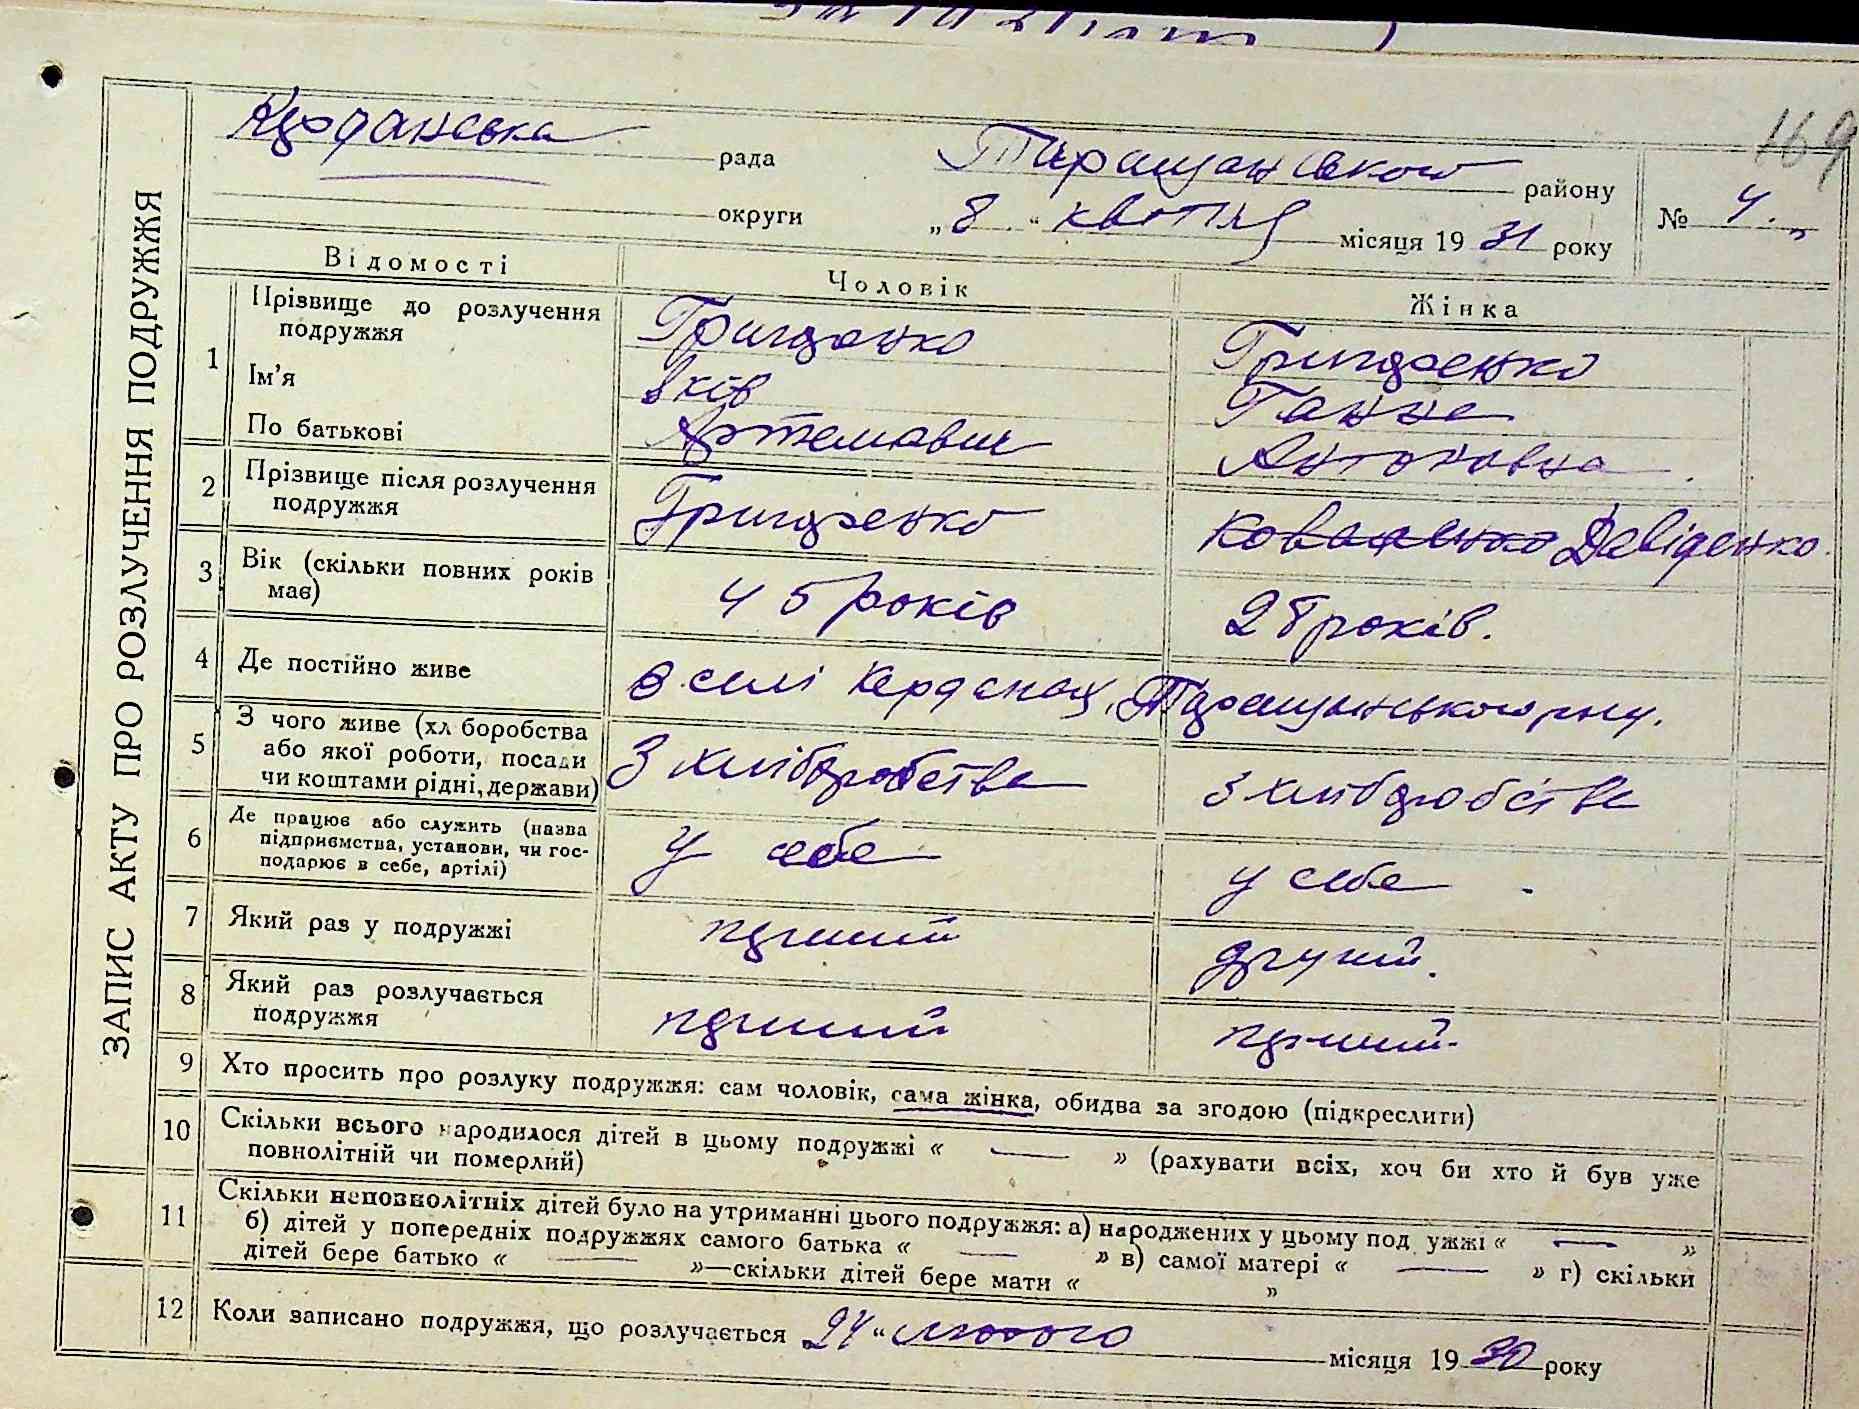 169
ЗАПИС АКТУ ПРО РОЗЛУЧЕННЯ ПОДРУЖЖЯ
рада Таращанського району № 4.
округи „8“ квітня місяця 1931 року
Відомості Чоловік Жінка
1 Прізвище до розлучення Грищенко Грищенко
подружжя
Ім'я Яків Ганна
По батькові Артемович Антоновна
2 Прізвище після розлучення Грищенко Коваленко Давіденко
подружжя
3 Вік (скільки повних років 45 років 28 років.
має)
4 Де постійно живе в селі Кердани, Таращанського р-ну.
5 З чого живе (хл боробства З хліборобства З хліборобства
або якої роботи, посади
чи коштами рідні, держави)
6 Де працює або служить (назва у себе у себе
підприємства, установи, чи гос-
подарює в себе, артілі)
7 Який раз у подружжі перший другий.
8 Який раз розлучається перший перший.
подружжя
9 Хто просить про розлуку подружжя: сам чоловік, сама жінка, обидва за згодою (підкреслити)
10 Скільки всього народилося дітей в цьому подружжі « — » (рахувати всіх, хоч би хто й був уже
повнолітній чи померлий)
11 Скільки неповнолітніх дітей було на утриманні цього подружжя: а) народжених у цьому под ужжі « — »
б) дітей у попередніх подружжях самого батька « — » в) самої матері « — » г) скільки
дітей бере батько « — »—скільки дітей бере мати « »
12 Коли записано подружжя, що розлучається 24 „ лютого місяця 1930 року